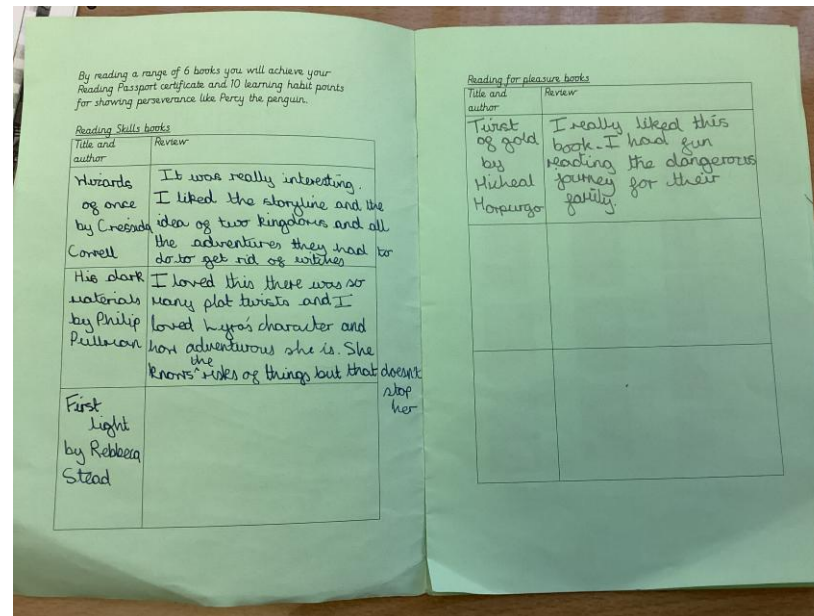 By reading a range of 6 books you will achieve your
Reading Passport certificate and 10 learning habit points
for showing perseverance like Percy the penguin.
Reading Skills books
Title and
author
Review
Wizards
of once
by Cressida
Cowell
It was really interesting.
I liked the storyline and the
idea of two kingdoms and all
the adventures they had to
do to get rid of witches
His dark
materials
by Philip
Pullman
I loved this there was so
many plot twists and I
loved Lyra's character and
how adventurous she is. She
knows the risks of things but that doesn't
stop
her
First
light
by Rebbeca
Stead
Reading for pleasure books
Title and
author
Review
Turst
of gold
by
Micheal
Morpurgo
I really liked this
book. I had fun
reading the dangerous
journey for their
family.